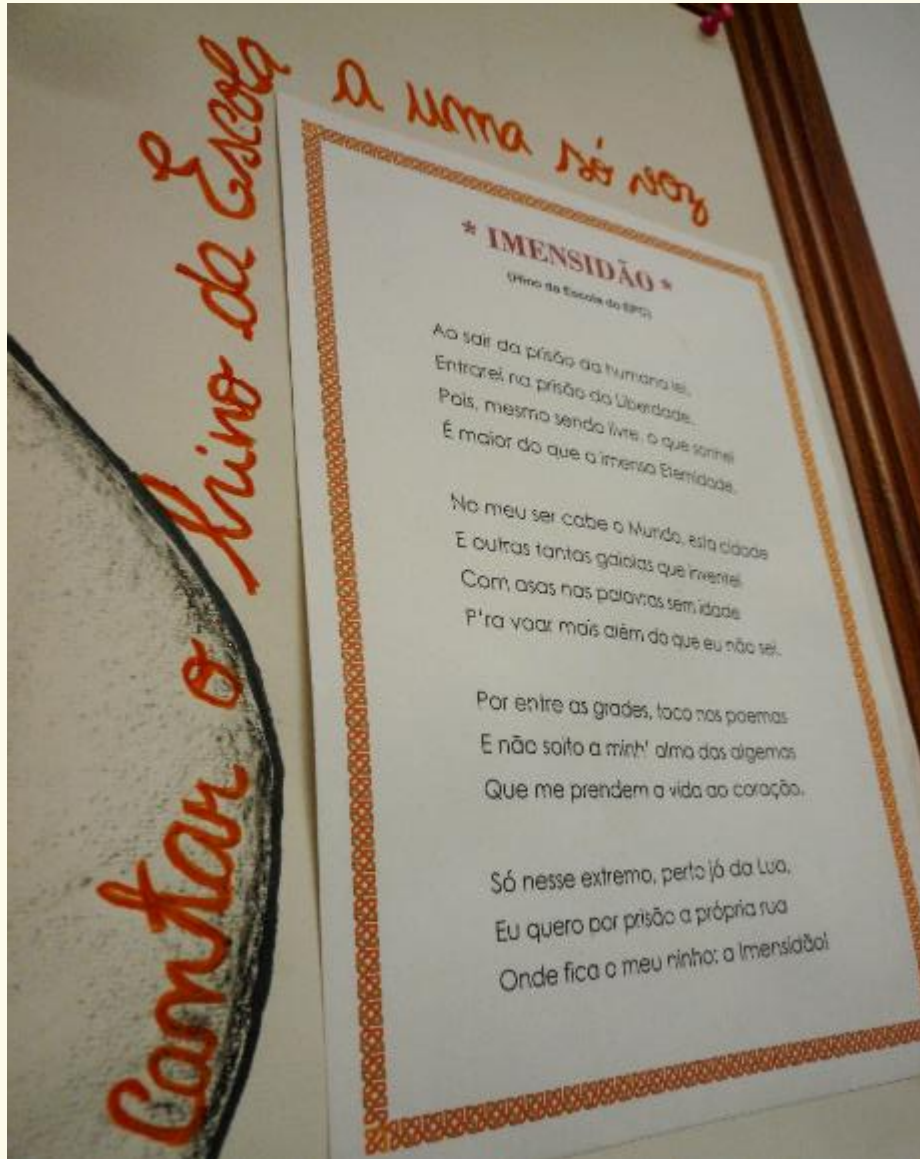 Cantar o hino da Escola
a uma só voz
* IMENSIDÃO *
(Hino da Escola do EPG)
Ao sair da prisão da humana lei,
Entrarei na prisão da Liberdade,
Pois, mesmo sendo livre, o que sonhei
É maior do que a imensa Eternidade.
No meu ser cabe o Mundo, esta cidade
E outras tantas gaiolas que inventei
Com asas nas palavras sem idade
P'ra voar mais além do que eu não sei.
Por entre as grades, toco nos poemas
E não solto a minh' alma das algemas
Que me prendem a vida ao coração.
Só nesse extremo, perto já da Lua,
Eu quero por prisão a própria rua
Onde fica o meu ninho: a Imensidão!